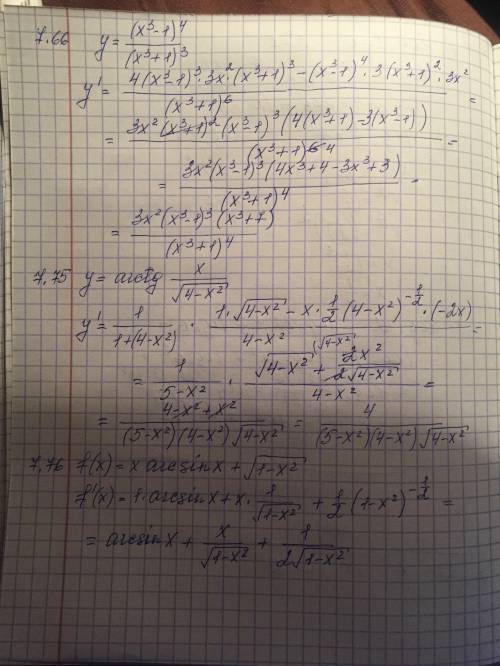 7.66 y = (x³-1)⁴/(x³+1)³
y' = (4(x³-1)³·3x²·(x³+1)³ - (x³-1)⁴·3(x³+1)²·3x²)/(x³+1)⁶ =
= (3x²(x³+1)²-(x³-1)³(4(x³+1)-3(x³-1)))/(x³+1)⁶ ⁴ =
= (3x²(x³-1)³(4x³+4-3x³+3))/(x³+1)⁴ .
= (3x²(x³-1)³(x³+7))/(x³+1)⁴
7.75 y = arctg x/√(4-x²)
y' = 1/(1+(4-x²)) · (1·√(4-x²) - x·1/2(4-x²)^(-1/2)·(-2x))/(4-x²) =
= 1/(5-x²) · (√(4-x²) (√(4-x²) + 2x²/(2√(4-x²)))/(4-x²) =
= (4-x²+x²)/((5-x²)(4-x²)√(4-x²)) = 4/((5-x²)(4-x²)√(4-x²))
7.76 f(x) = x arcsinx + √(1-x²)
f'(x) = 1·arcsinx + x·1/√(1-x²) + 1/2(1-x²)^(-1/2) =
= arcsinx + x/√(1-x²) + 1/(2√(1-x²))